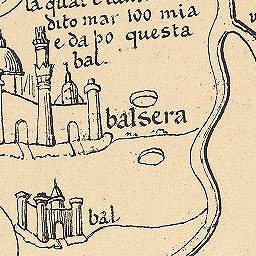 dito mar 100 mia
e da po questa
bal.
balsera
bal